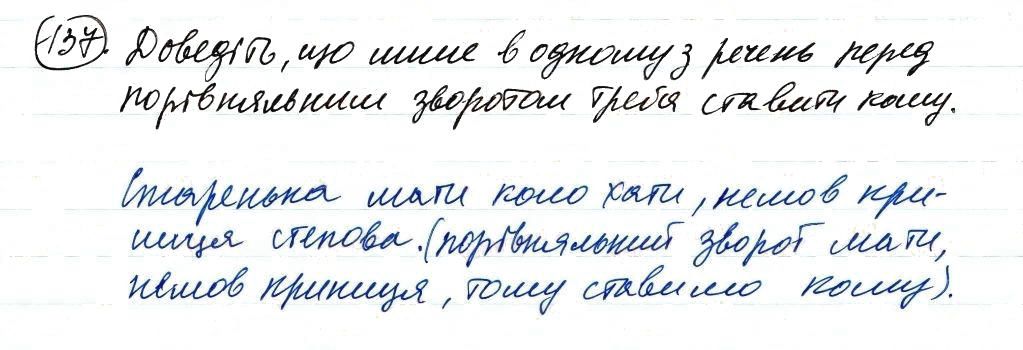 137. Доведіть, що лише в одному з речень перед
порівняльним зворотом треба ставити кому.
Старенька мати коло хати, немов кри-
ниця степова. (порівняльний зворот мати,
немов криниця, тому ставимо кому).